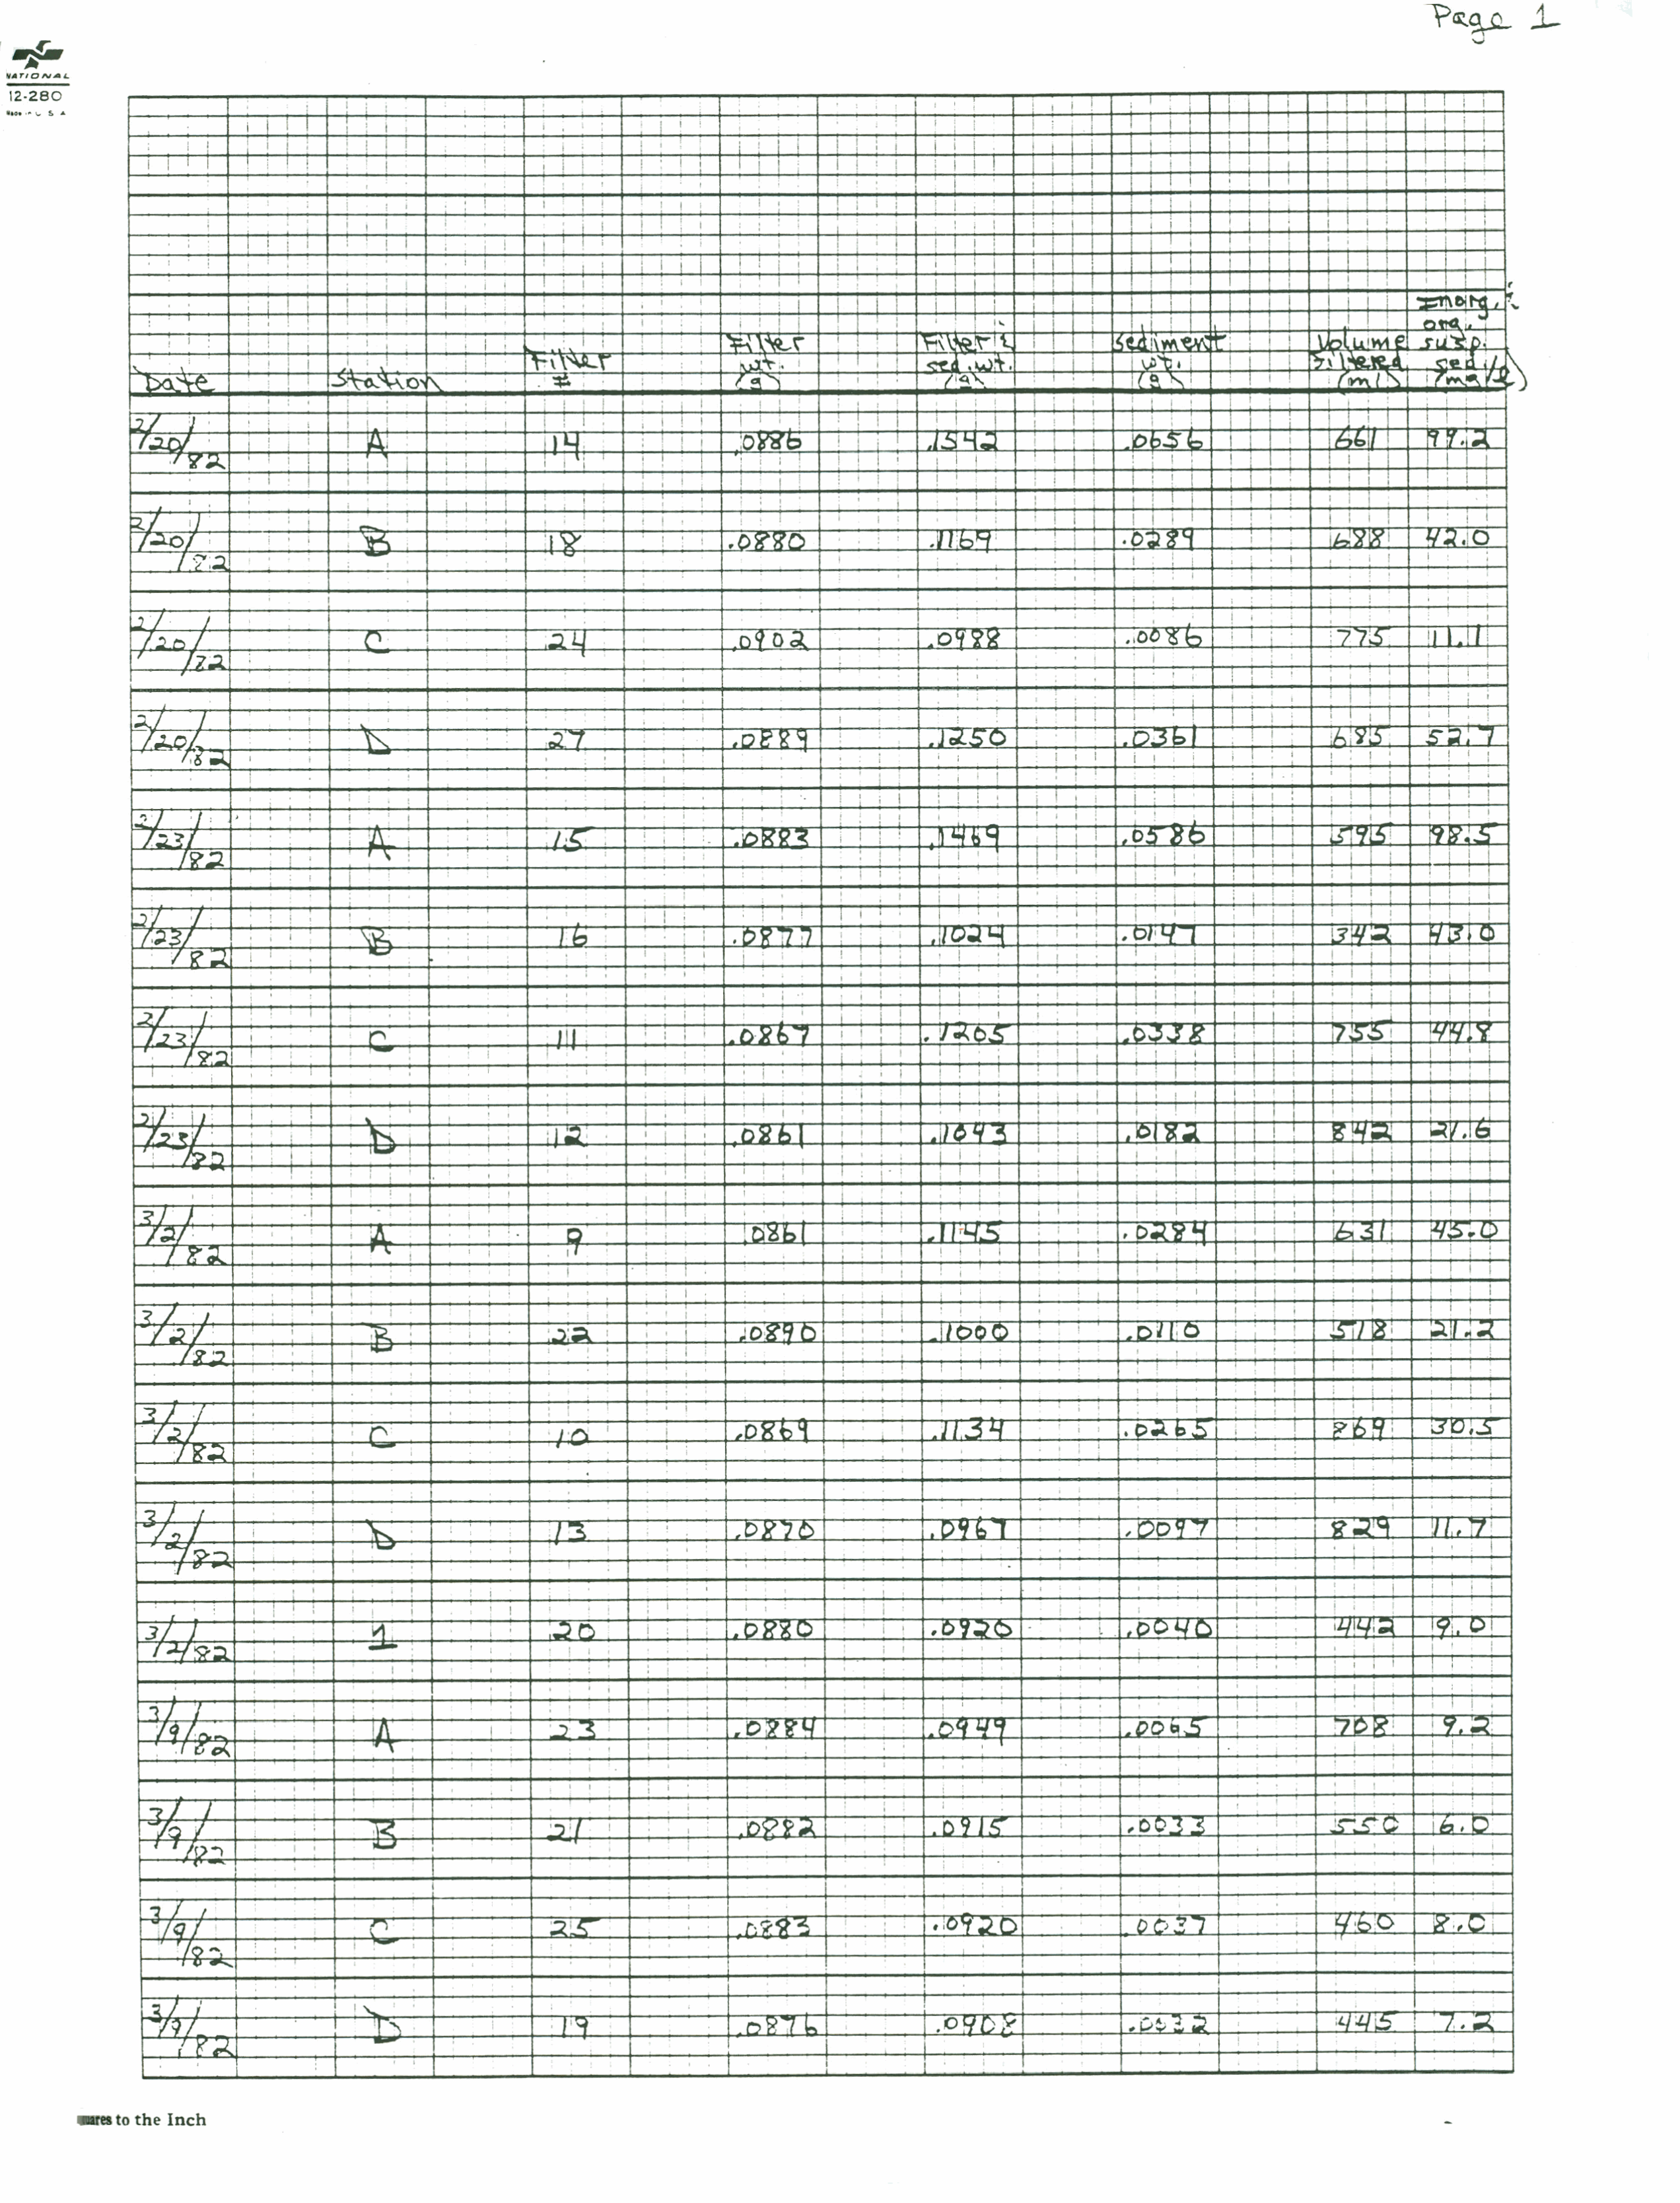 Page 1
NATIONAL
12-280
Made in U S A
Inorg. &
org.
Filter Filter & sediment Volume susp.
Filter wt. sed. wt. wt. Filtered sed.
Date Station # (g) (g) (g) (ml) (mg/l)
2/20/82 A 14 .0886 .1542 .0656 661 99.2
2/20/82 B 18 .0880 .1169 .0289 688 42.0
2/20/82 C 24 .0902 .0988 .0086 775 11.1
2/20/82 D 27 .0889 .1250 .0361 685 52.7
2/23/82 A 15 .0883 .1469 .0586 595 98.5
2/23/82 B 16 .0877 .1024 .0147 342 43.0
2/23/82 C 11 .0867 .1205 .0338 755 44.8
2/23/82 D 12 .0861 .1043 .0182 842 21.6
3/2/82 A 9 .0861 .1145 .0284 631 45.0
3/2/82 B 22 .0890 .1000 .0110 518 21.2
3/2/82 C 10 .0869 .1134 .0265 869 30.5
3/2/82 D 13 .0870 .0967 .0097 829 11.7
3/2/82 1 20 .0880 .0920 .0040 442 9.0
3/9/82 A 23 .0884 .0949 .0065 708 9.2
3/9/82 B 21 .0882 .0915 .0033 550 6.0
3/9/82 C 25 .0883 .0920 .0037 460 8.0
3/9/82 D 19 .0876 .0908 .0032 445 7.2
uares to the Inch